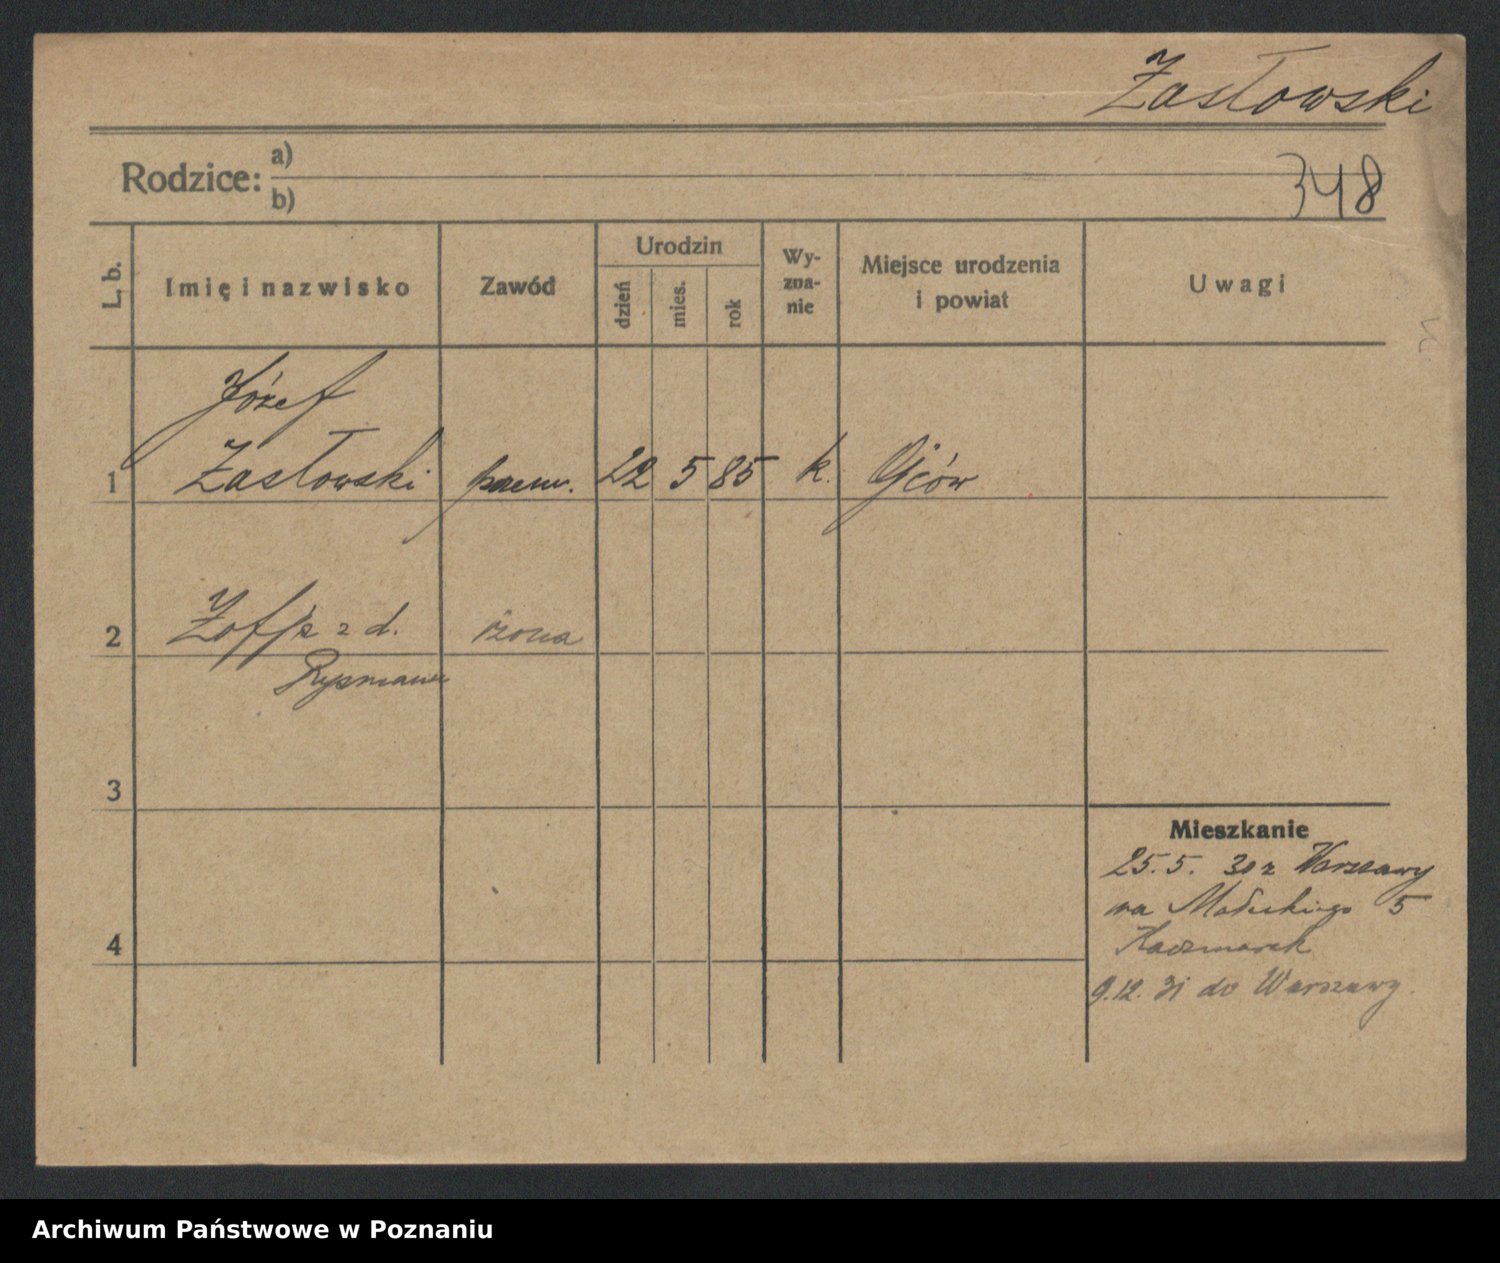 Zasłowski
Rodzice: a)
b)
348
L. b.
Imię i nazwisko
Zawód
Urodzin
dzień
mies.
rok
Wy-
zna-
nie
Miejsce urodzenia
i powiat
Uwagi
Józef
1 Zasłowski 22 5 85 k.
2 Zofja z d. żona
3
Mieszkanie
25.5. 30 z Warszawy
na Małeckiego 5
Kaczmarek
4
9.12. 31 do Warszawy.
Archiwum Państwowe w Poznaniu